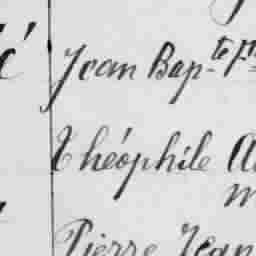 Jean Bap-te
Théophile
Pierre Jean